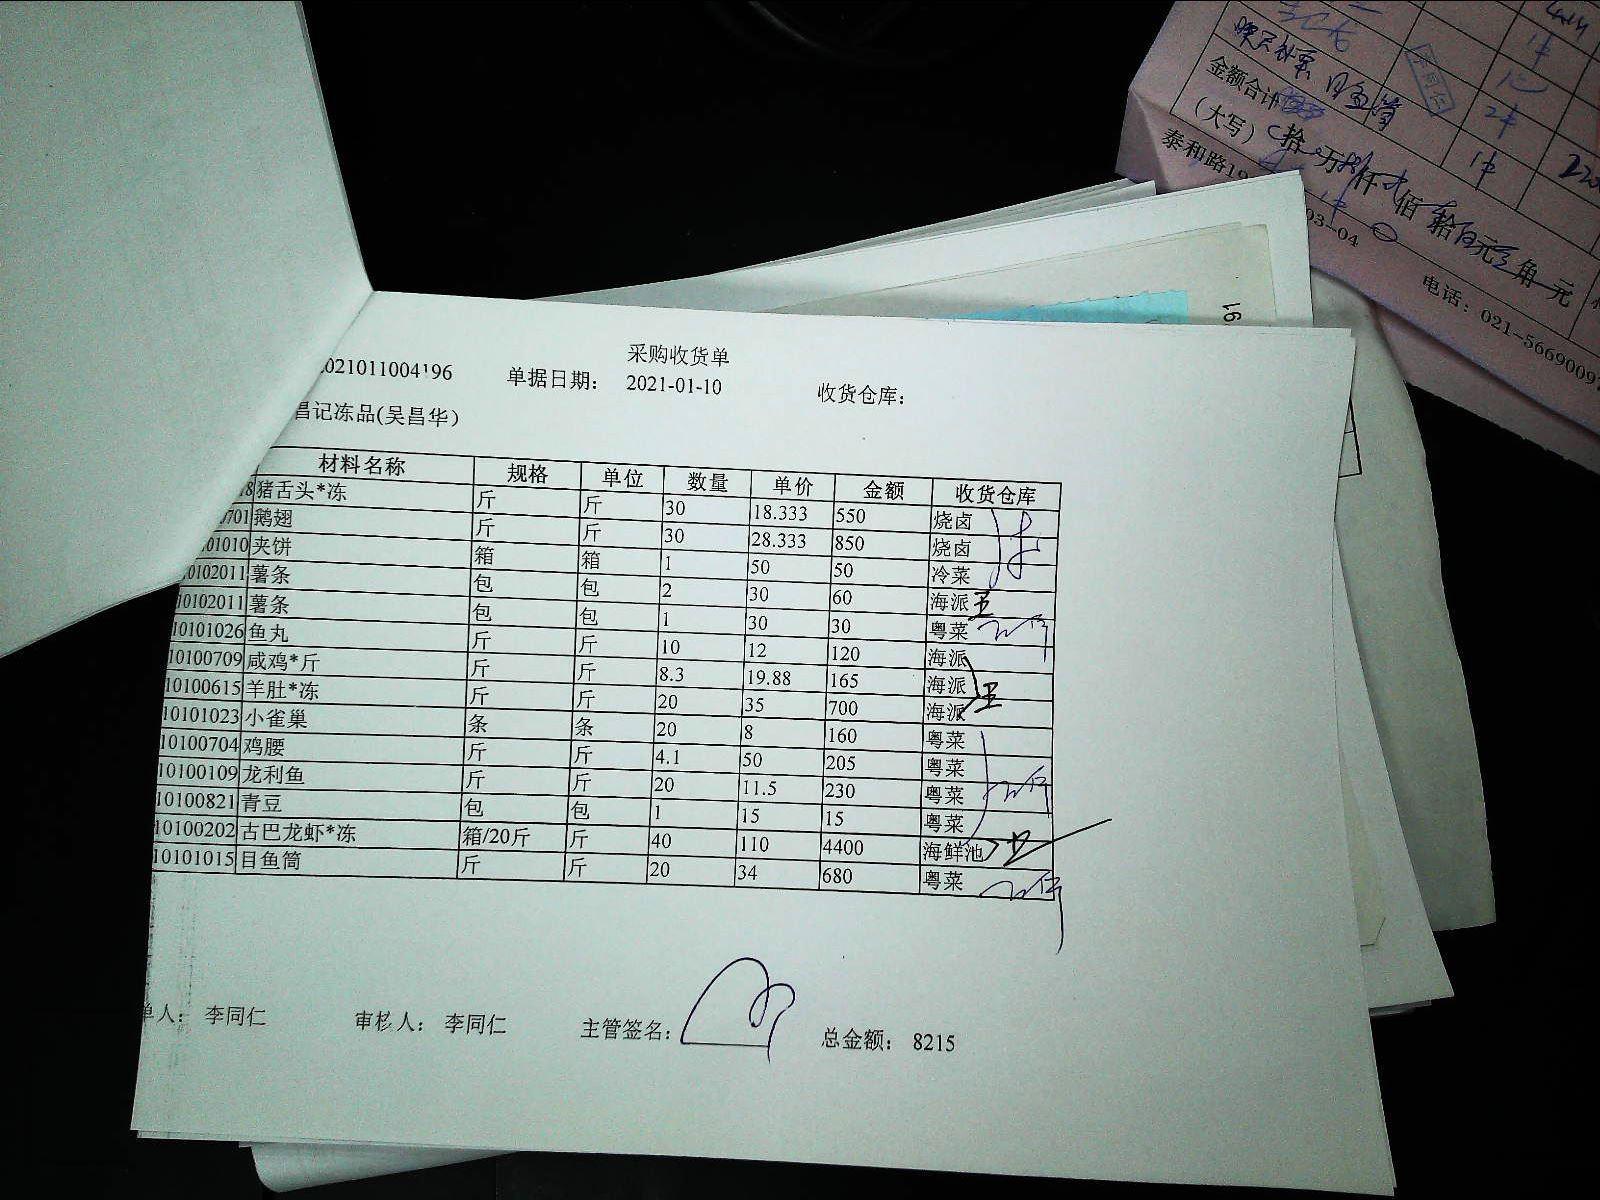 采购收货单
2021011004196 单据日期： 2021-01-10 收货仓库：
昌记冻品(吴昌华）
材料名称 规格 单位 数量 单价 金额 收货仓库
8 猪舌头*冻 斤 斤 30 18.333 550 烧卤
0701 鹅翅 斤 斤 30 28.333 850 烧卤
01010 夹饼 箱 箱 1 50 50 冷菜
10102011 薯条 包 包 2 30 60 海派 王
10102011 薯条 包 包 1 30 30 粤菜
10101026 鱼丸 斤 斤 10 12 120 海派
10100709 咸鸡*斤 斤 斤 8.3 19.88 165 海派
10100615 羊肚*冻 斤 斤 20 35 700 海派 王
10101023 小雀巢 条 条 20 8 160 粤菜
10100704 鸡腰 斤 斤 4.1 50 205 粤菜
10100109 龙利鱼 斤 斤 20 11.5 230 粤菜
10100821 青豆 包 包 1 15 15 粤菜
10100202 古巴龙虾*冻 箱/20斤 斤 40 110 4400 海鲜池
10101015 目鱼筒 斤 斤 20 34 680 粤菜
单人： 李同仁 审核人： 李同仁 主管签名： 总金额： 8215
金额合计
（大写） 拾 万 仟 佰 拾 元 角 元
泰和路19 03-04
电话：021-5669009
19